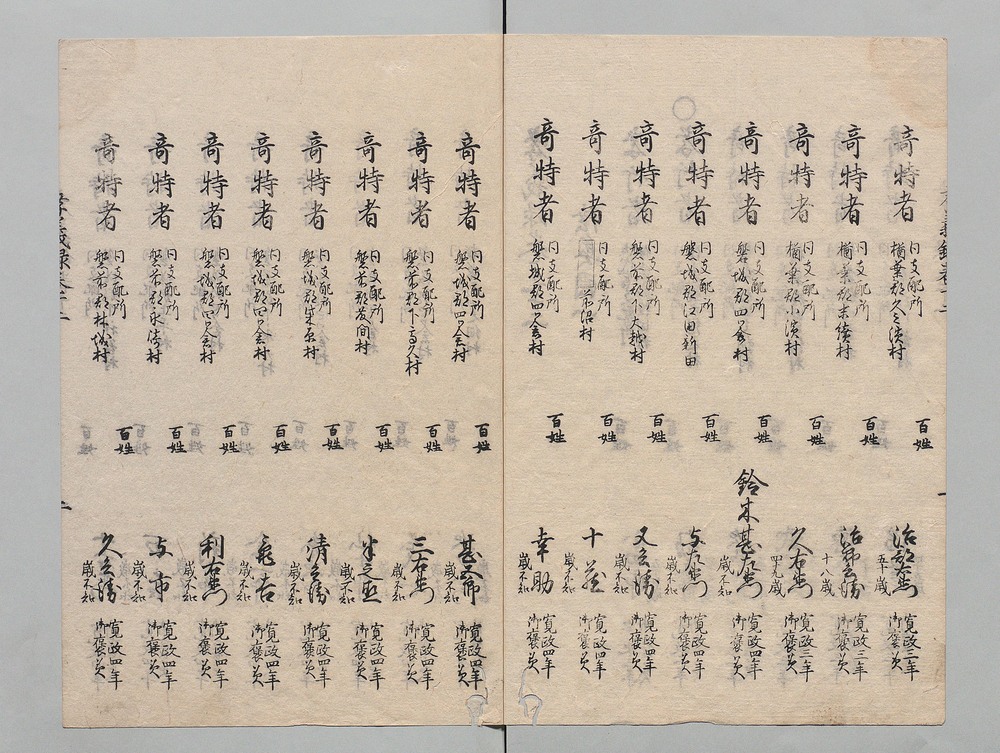 竒特者 同支配所 楢葉郡久之濱村 百姓 治郎左衛門 五十歳 寛政三年 御褒美
竒特者 同支配所 楢葉郡末續村 百姓 治部兵衛 十八歳 寛政三年 御褒美
竒特者 同支配所 楢葉郡小濱村 百姓 久右衛門 四十九歳 寛政三年 御褒美
竒特者 同支配所 磐城郡四ツ倉村 百姓 鈴木甚左衛門 歳不知 寛政四年 御褒美
竒特者 同支配所 磐城郡江田新田 百姓 与左衛門 歳不知 寛政四年 御褒美
竒特者 同支配所 磐前郡下大越村 百姓 又兵衛 歳不知 寛政四年 御褒美
竒特者 同支配所 苐沼村 百姓 十蔵 歳不知 寛政四年 御褒美
竒特者 同支配所 磐城郡四ツ倉村 百姓 幸助 歳不知 寛政四年 御褒美
竒特者 同支配所 磐城郡四ツ倉村 百姓 甚五郎 歳不知 寛政四年 御褒美
竒特者 同支配所 磐前郡下高久村 百姓 三右衛門 歳不知 寛政四年 御褒美
竒特者 同支配所 磐前郡 村 百姓 半之丞 歳不知 寛政四年 御褒美
竒特者 同支配所 磐城郡 村 百姓 清兵衛 歳不知 寛政四年 御褒美
竒特者 同支配所 磐城郡四ツ倉村 百姓 亀吉 歳不知 寛政四年 御褒美
竒特者 同支配所 磐城郡四ツ倉村 百姓 利右衛門 歳不知 寛政四年 御褒美
竒特者 同支配所 磐前郡永崎村 百姓 与市 歳不知 寛政四年 御褒美
竒特者 同支配所 磐前郡林城村 百姓 久兵衛 歳不知 寛政四年 御褒美